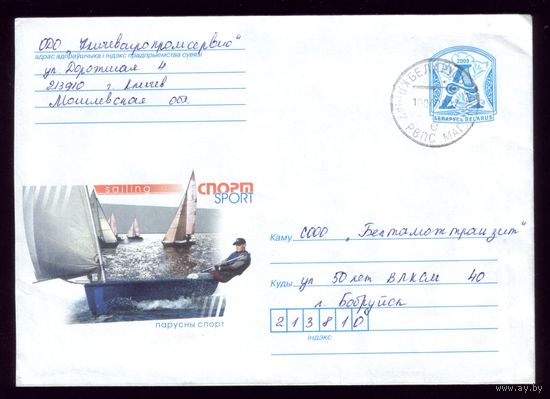 ОДО „Кричевагропромсервис"
адрас адпраўшчыка і індэкс прадпрыемства сувязі
ул Дорожная 4
213910 г. Кричев
Могилевская обл.
2003
А
БЕЛАРУСЬ BELARUS
РВПС МАГ
sailing
СПОРТ
SPORT
парусны спорт
Каму СООО „Белтаможтранзит"
Куды ул 50 лет ВЛКСМ 40
г. Бобруйск
213810
індэкс
www.ay.by